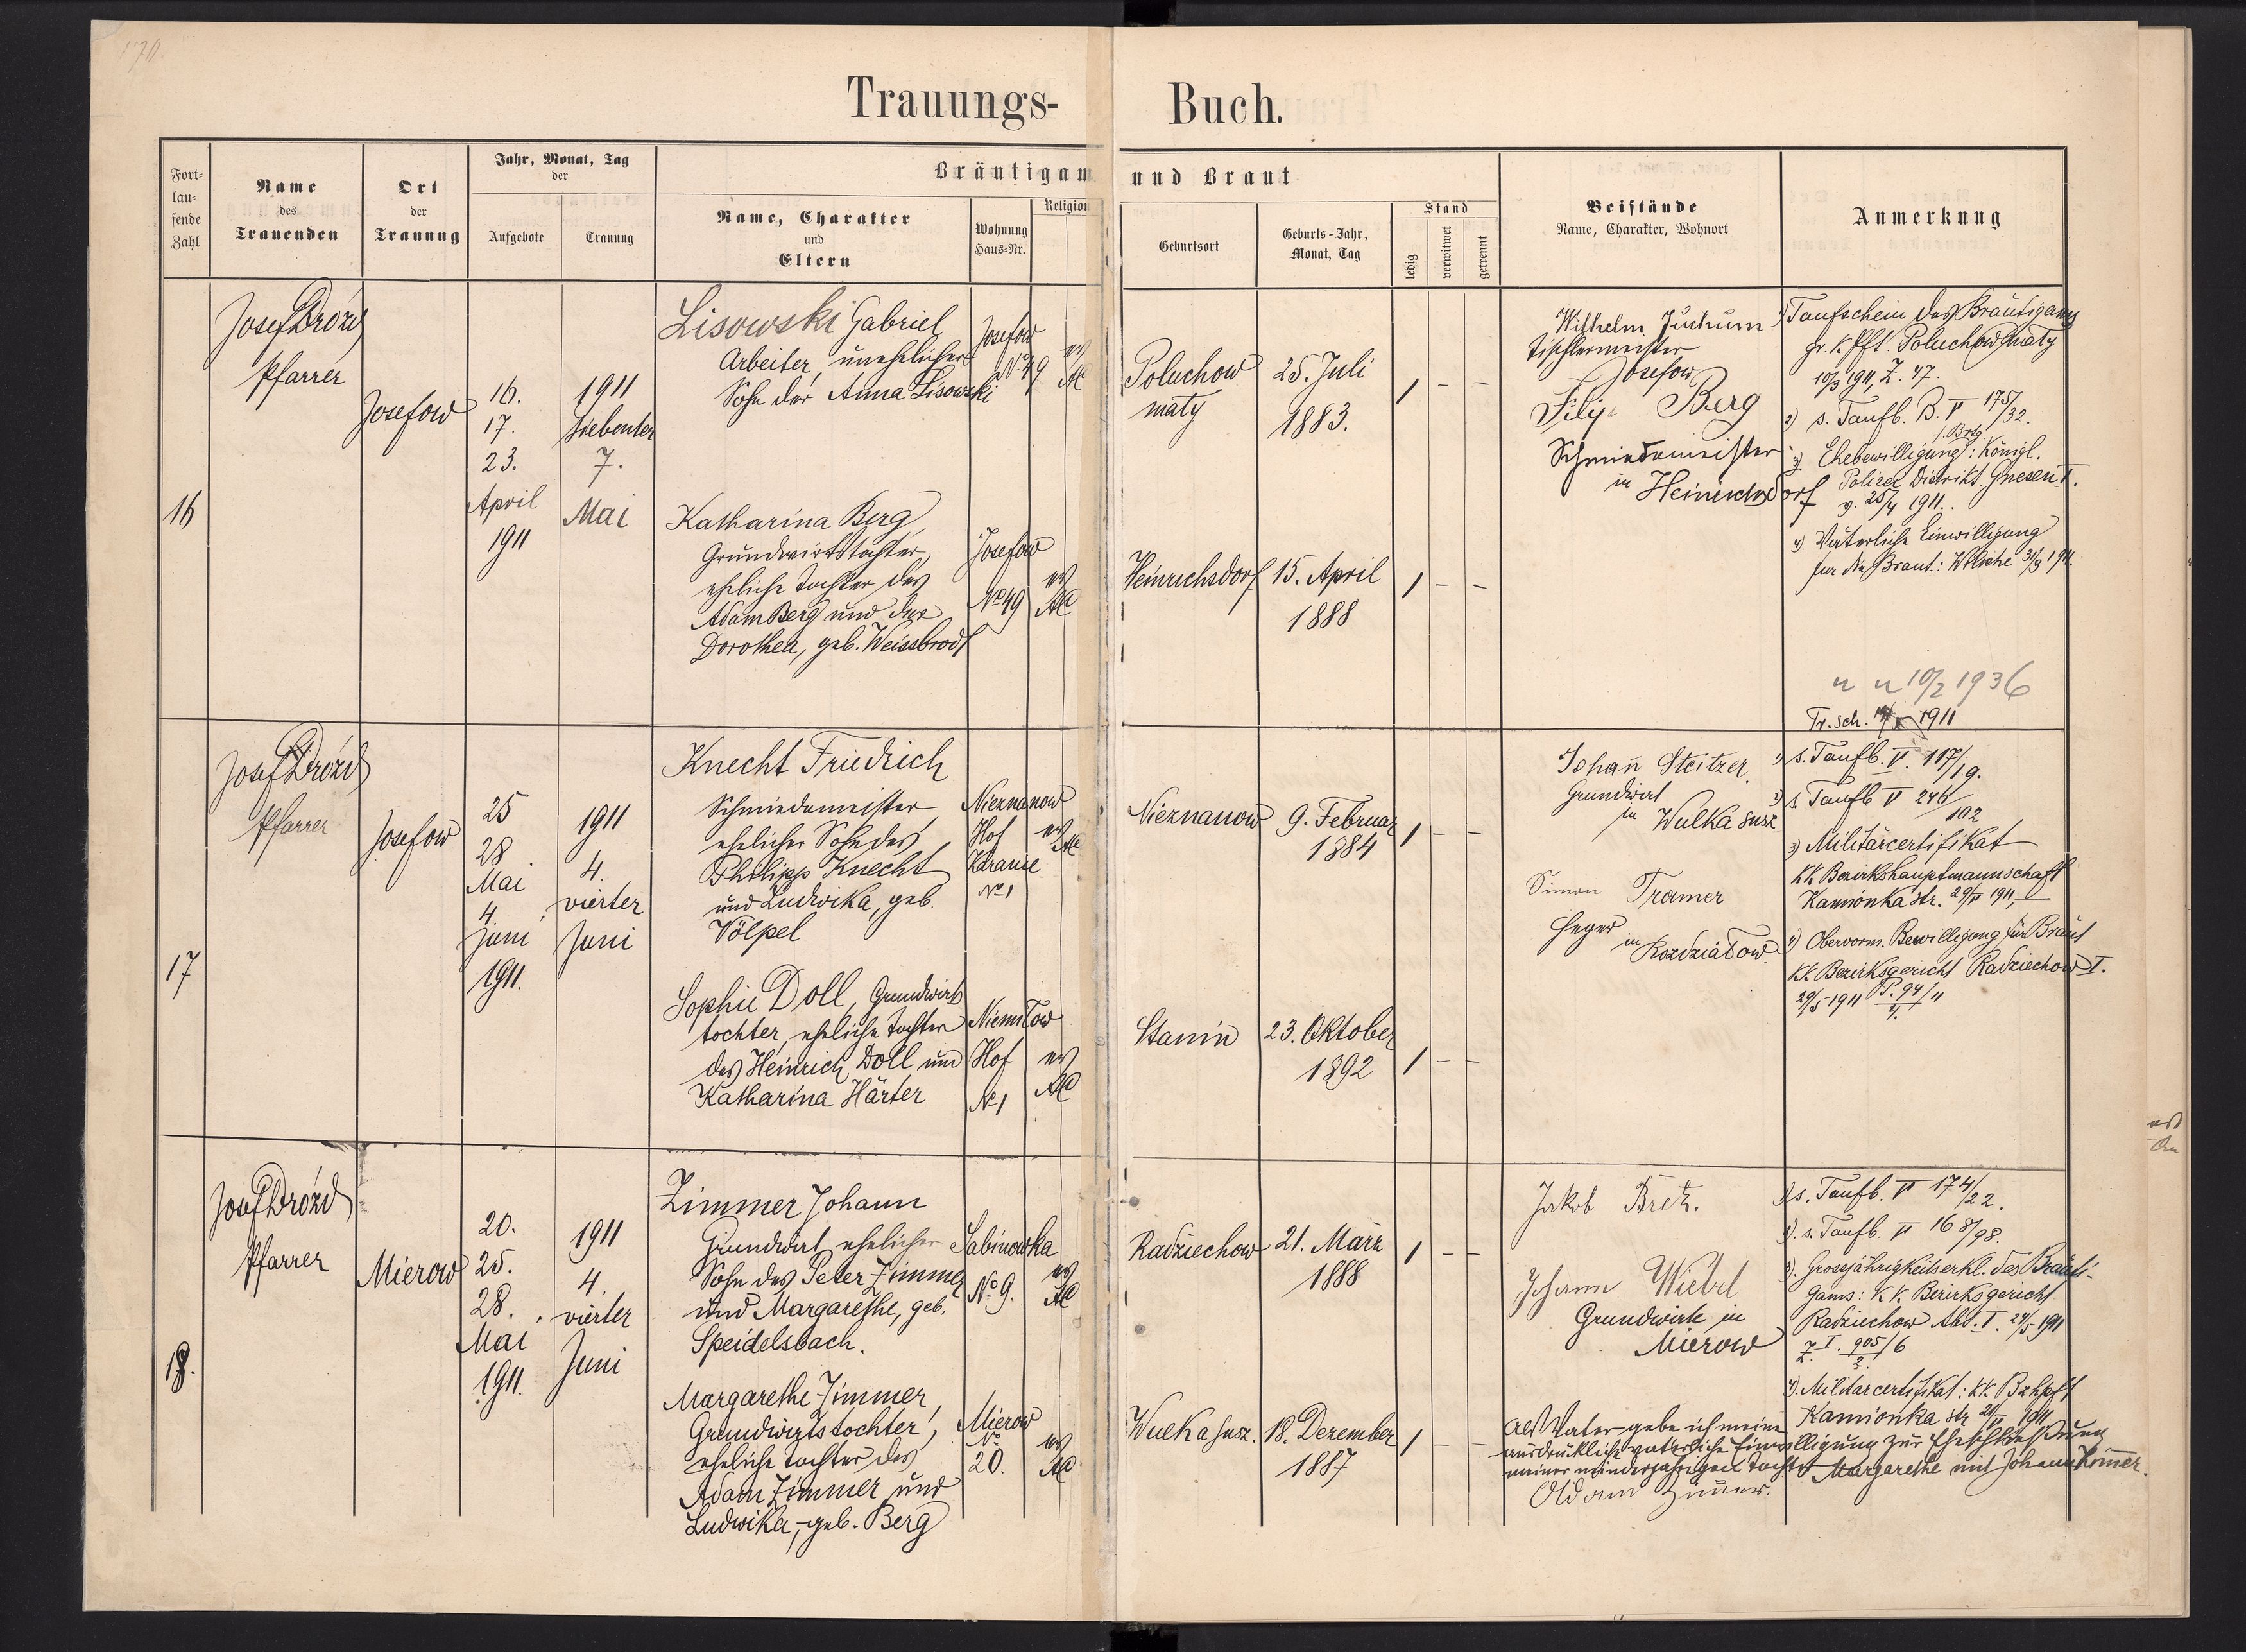 170.
Trauungs-Buch.
Fort-
lau-
fende
Zahl
Name
des
Trauenden
Ort
der
Trauung
Jahr, Monat, Tag
der
Aufgebote
Trauung
Bräutigam und Braut
Name, Charakter
und
Eltern
Wohnung
Haus-Nr.
Religion
Geburtsort
Geburts-Jahr,
Monat, Tag
Stand
ledig
verwitwet
getrennt
Beistände
Name, Charakter, Wohnort
Anmerkung
16
Josef Drózd
Pfarrer
Josefow
16.
17.
23.
April
1911
1911
Siebenter
7.
Mai
Lisowski Gabriel
Arbeiter, unehelicher
Sohn der Anna Lisowski
Josefow
No 49
ev
AC
Poluchow
maty
25. Juli
1883.
1 - -
Katharina Berg,
Grundwirtstochter,
eheliche Tochter des
Adam Berg und der
Dorothea, geb. Weissbrodt
Josefow
No 49
ev
AC
Heinrichsdorf
15. April
1888
1 - -
Wilhelm Juchum
Tischlermeister
Josefow
Filip Berg
Schmiedemeister
in Heinrichsdorf
1) Taufschein des Bräutigams
gr. k. Pft. Poluchow maty
10/3 1911, Z. 47.
2) s. Taufb. B. V 175/32.
f. Brtg
3) Ehebewilligung: Königl.
Polizei Distrikt Gnesen I.
v. 25/4 1911.
4) Väterliche Einwilligung
für die Braut: 31/3 1911.
10/2 1936
Tr. sch. 1911
17
Josef Drózd
Pfarrer
Josefow
25
28
Mai
4.
Juni
1911.
1911
4.
vierter
Juni
Knecht Friedrich
Schmiedemeister,
ehelicher Sohn des
Philipp Knecht
und Ludwika, geb.
Völpel
Nieznanow
Hof
No 1
ev
AC
Nieznanow
9. Februar
1884
1 - -
Sophie Doll, Grundwirts
tochter, eheliche Tochter
des Heinrich Doll und
Katharina Härter
Niemiłow
Hof
No 1
ev
AC
Stanin
23. Oktober
1892
1 - -
Johann Steitzer
Grundwirt
in Wulka susz
Simon Tramer
Heger in
1) s. Taufb. V. 117/19.
2) s. Taufb V 246/102
3) Militärcertifikat
KK Bezirkshauptmannschaft
Kamionka str. 29/V 1911,
4) Oberworm. Bewilligung für Braut
KK Bezirksgericht Radziechow I.
29/5 1911 P. 94/11
4.
18.
Josef Drózd
Pfarrer
Mierow
20.
25.
28.
Mai
1911.
1911
4.
vierter
Juni
Zimmer Johann
Grundwirt, ehelicher
Sohn des Peter Zimmer
und Margarethe, geb.
Speidelsbach.
Sabinowka
No 9.
ev
AC
Radziechow
21. März
1888
1 - -
Margarethe Zimmer,
Grundwirtstochter,
eheliche Tochter des
Adam Zimmer und
Ludwika, geb. Berg
Mierow
No
20.
ev
AC
Wulka susz.
18. Dezember
1887
1 - -
Jakob Bretz.
Johann Wiebel
Grundwirte in
Mierow
1) s. Taufb. V 174/22.
2). s. Taufb. V 168/98.
3). Grossjährigkeitserkl. des Bräuti-
gams: k k. Bezirksgericht
Radziechow Abt. I. 24/5 1911
Z. I. 905/6
2.
4). Militärcertifikat: KK. Bzhpft
Kamionka str 21/V 1911
Als Vater gebe ich meine
ausdrückliche väterliche Einwilligung zur Eheschließung
meiner minderjährigen Tochter Margarethe mit Johann Zimmer.
Adam Zimmer.